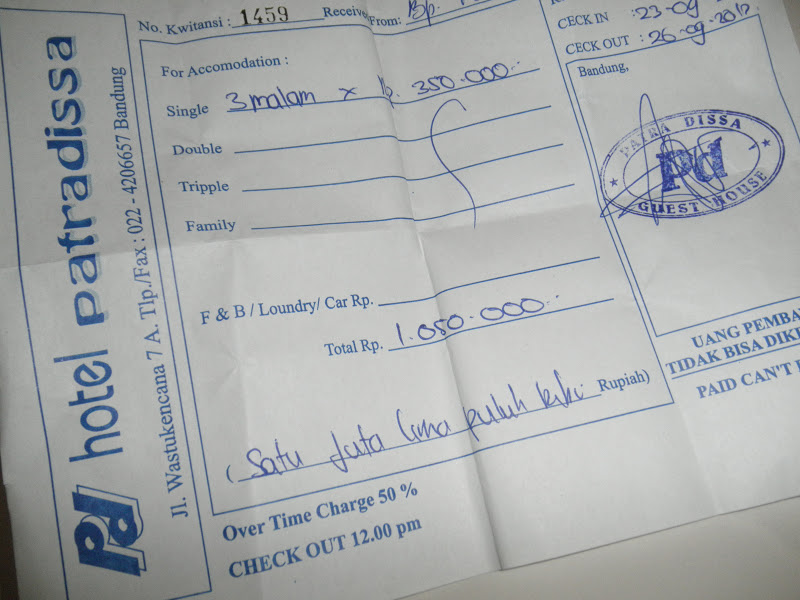 pd hotel patradissa
Jl. Wastukencana 7 A. Tlp./Fax : 022 - 4206657 Bandung
No. Kwitansi : 1459 Receive From: Bp.
CECK IN : 23-09
CECK OUT : 26-09-2012
For Accomodation :
Single 3 malam x Rp. 350.000
Double
Tripple
Family
F & B / Loundry/ Car Rp.
Total Rp. 1.050.000
( Satu juta lima puluh ribu Rupiah)
Over Time Charge 50 %
CHECK OUT 12.00 pm
Bandung,
PATRA DISSA
Pd
GUEST HOUSE
UANG PEMBA
TIDAK BISA DIK
PAID CAN'T